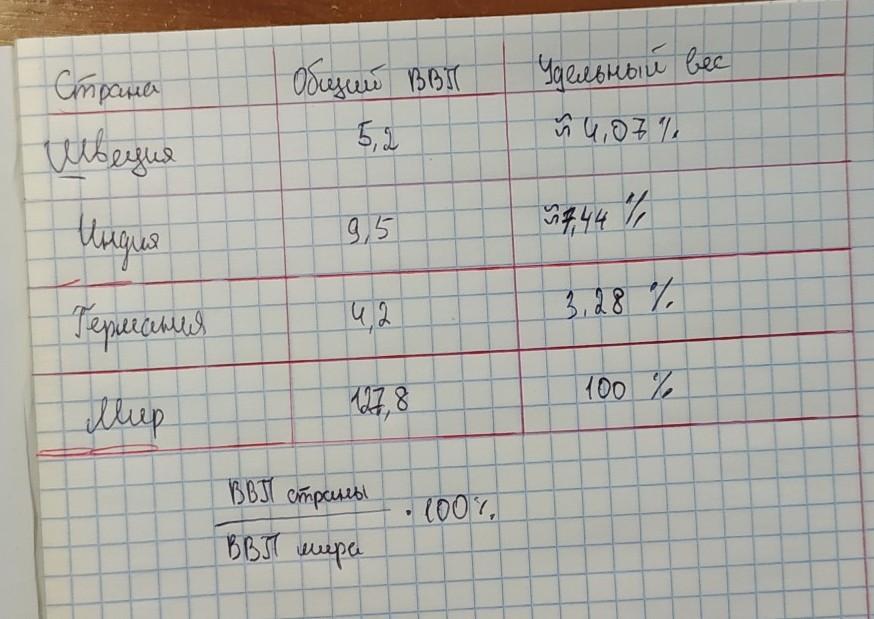 Страна Общий ВВП Удельный вес
Швеция 5,2 ≈ 4,07 %
Индия 9,5 ≈7,44 %
Германия 4,2 3,28 %
Мир 127,8 100 %
ВВП страны
· 100%
ВВП мира